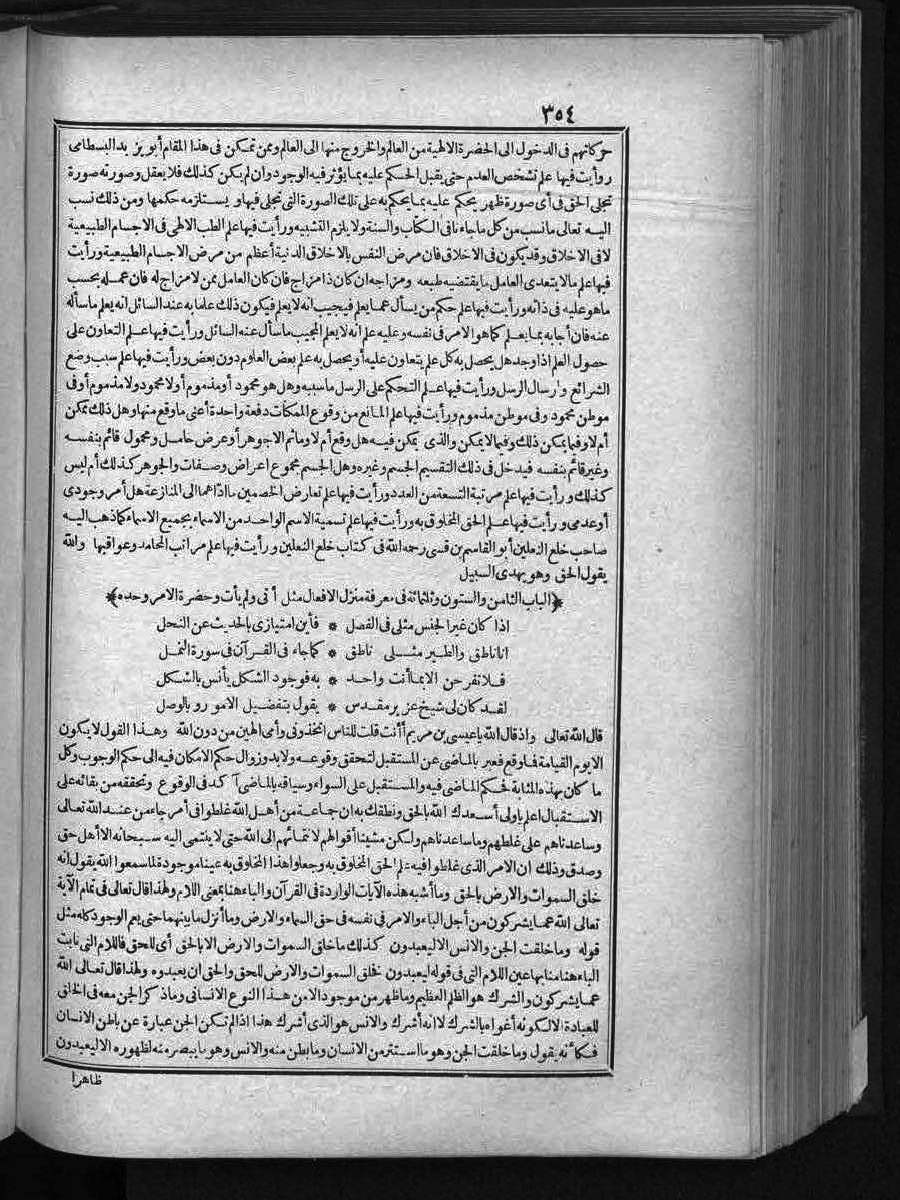 ٣٥٤
حركاتهم فى الدخول الى الحضرة الالهية من العالم والخروج منها الى العالم وممن تمكن فى هذا المقام أبو يزيد البسطامى
ورأيت فيها علم تشخص العدم حتى يقبل الحكم عليه بما يؤثر فيه الوجود وان لم يكن كذلك فلا يعقل وصورته صورة
تجلى الحق فى أى صورة ظهر يحكم عليه بما يحكم به على تلك الصورة التى تجلى فيها ويستلزمه حكمها ومن ذلك نسب
اليه تعالى ما نسب من كل ما جاءنا فى الكتاب والسنة ولا يلزم التشبيه ورأيت فيها علم الطب الالهى فى الاجسام الطبيعية
لا فى الاخلاق وقد يكون فى الاخلاق فان مرض النفس بالاخلاق الدنية أعظم من مرض الاجسام الطبيعية ورأيت
فيها علم مالا يتعدى العامل ما يقتضيه طبعه ومزاجه ان كان ذا مزاج فان كان العامل ممن لا مزاج له فان عمله بحسب
ماهو عليه فى ذاته ورأيت فيها علم حكم من يسأل عما يعلم فيجيب انه لا يعلم فيكون ذلك علما به عند السائل انه يعلم ما سأله
عنه فان أجابه بما يعلم كما هو الامر فى نفسه وعليه علم انه لا يعلم المجيب ما سأل عنه السائل ورأيت فيها علم التعاون على
حصول العلم اذا وجد هل يحصل به كل علم يتعاون عليه أو يحصل به علم بعض العلوم دون بعض ورأيت فيها علم سبب وضع
الشرائع وارسال الرسل ورأيت فيها علم التحكم على الرسل ما سببه وهل هو محمود أو مذموم أولا محمود ولا مذموم أو فى
موطن محمود وفى موطن مذموم ورأيت فيها علم المانع من وقوع الممكنات دفعة واحدة أعنى ما وقع منها وهل ذلك ممكن
أم لا وفيما يمكن ذلك وفيما لا يمكن والذى يمكن فيه هل وقع أم لا وما ثم الا جوهر أو عرض حامل ومحمول قائم بنفسه
وغير قائم بنفسه فيدخل فى ذلك التقسيم الجسم وغيره وهل الجسم مجموع اعراض وصفات والجوهر كذلك أم ليس
كذلك ورأيت فيها علم مرتبة التسعة من العدد ورأيت فيها علم تعارض الخصمين ما أداهما الى المنازعة هل أمر وجودى
أو عدمى ورأيت فيها علم الحق المخلوق به ورأيت فيها علم تسمية الاسم الواحد من الاسماء بجميع الاسماء كما ذهب اليه
صاحب خلع النعلين أبو القاسم بن قسى رحمه الله فى كتاب خلع النعلين ورأيت فيها علم مراتب المحامد وعواقبها والله
يقول الحق وهو يهدى السبيل
﴿الباب الثامن والستون وثلثمائة فى معرفة منزل الافعال مثل أتى ولم يأت وحضرة الامر وحده﴾
اذا كان غير الجنس مثلى فى الفصل * فأين امتيازى بالحديث عن النحل
انا ناطق والطير مثلى ناطق * كما جاء فى القرآن فى سورة النمل
فلا تفرحن الا بما أنت واحد * به فوجود الشكل يأنس بالشكل
لقد كان لى شيخ عزيز مقدس * يقول بتفضيل الامور وبالوصل
قال الله تعالى واذ قال الله يا عيسى بن مريم أأنت قلت للناس اتخذونى وأمى الهين من دون الله وهذا القول لا يكون
الا يوم القيامة فما وقع فعبر بالماضى عن المستقبل لتحقق وقوعه ولا بد وزوال حكم الامكان فيه الى حكم الوجوب وكل
ما كان بهذه المثابة فحكم الماضى فيه والمستقبل على السواء وسياقه بالماضى آكد فى الوقوع وتحققه من بقائه على
الاستقبال اعلم يا ولى أسعدك الله بالحق ونطقك به ان جماعة من أهل الله غلطوا فى أمر جاء من عند الله تعالى
وساعدناهم على غلطهم وما ساعدناهم ولكن مشينا أقوالهم لانتمائهم الى الله حتى لا ينتمى اليه سبحانه الا أهل حق
وصدق وذلك ان الامر الذى غلطوا فيه علم الحق المخلوق به وجعلوا هذا المخلوق به عينا موجودة لما سمعوا الله يقول انه
خلق السموات والارض بالحق وما أشبه هذه الآيات الواردة فى القرآن والباء هنا بمعنى اللام ولهذا قال تعالى فى تمام الآية
تعالى الله عما يشركون من أجل الباء والامر فى نفسه فى حق السماء والارض وما أنزل ما بينهما حتى يعم الوجود كله مثل
قوله وما خلقت الجن والانس الا ليعبدون كذلك ما خلق السموات والارض الا بالحق أى للحق فاللام التى نابت
الباء هنا منابها عين اللام التى فى قوله ليعبدون فخلق السموات والارض للحق والحق ان يعبدوه ولهذا قال تعالى الله
عما يشركون والشرك هو الظلم العظيم وما ظهر من موجود الا من هذا النوع الانسانى وما ذكر الجن معه فى الخلق
للعبادة الا لكونه أغواه بالشرك لا انه أشرك والانس هو الذى أشرك هذا اذا لم تكن الجن عبارة عن باطن الانسان
فكأنه يقول وما خلقت الجن وهو ما استتر من الانسان وما بطن منه والانس وهو ما يبصر منه لظهوره الا ليعبدون
ظاهرا